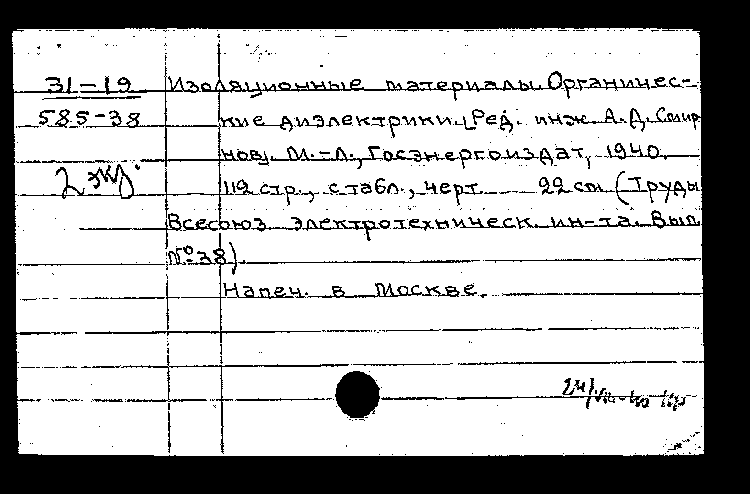 31-19 Изоляционные материалы. Органичес-
585-38 кие диэлектрики. [Ред. инж. А. Д. Смир
нов]. М.-Л., Госэнергоиздат, 1940.
2 экз. 112 стр., с табл., черт. 22 см (Труды
Всесоюз. электротехническ. ин-та. Вып.
№ 38).
Напеч. в Москве.